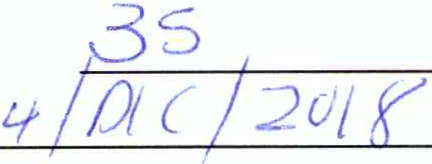 35
4/DIC/2018